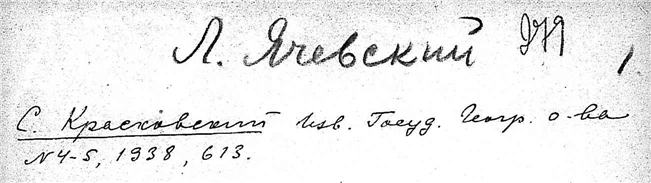 Л. Ячевский 1
С. Красковский Изв. Госуд. Геогр. о-ва
N 4-5, 1938, 613.